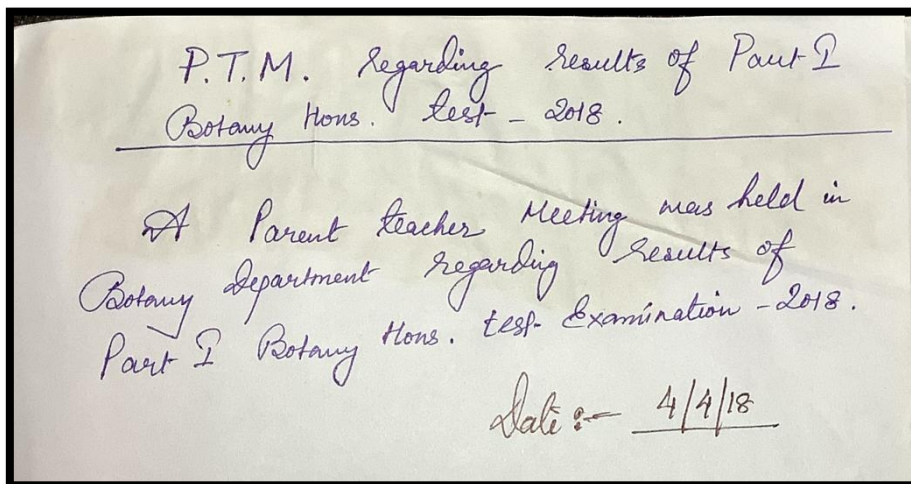 P.T.M. regarding results of Part I
Botany Hons. test - 2018.
A Parent teacher Meeting was held in
Botany department regarding results of
Part I Botany Hons. test Examination - 2018.
Date :- 4/4/18